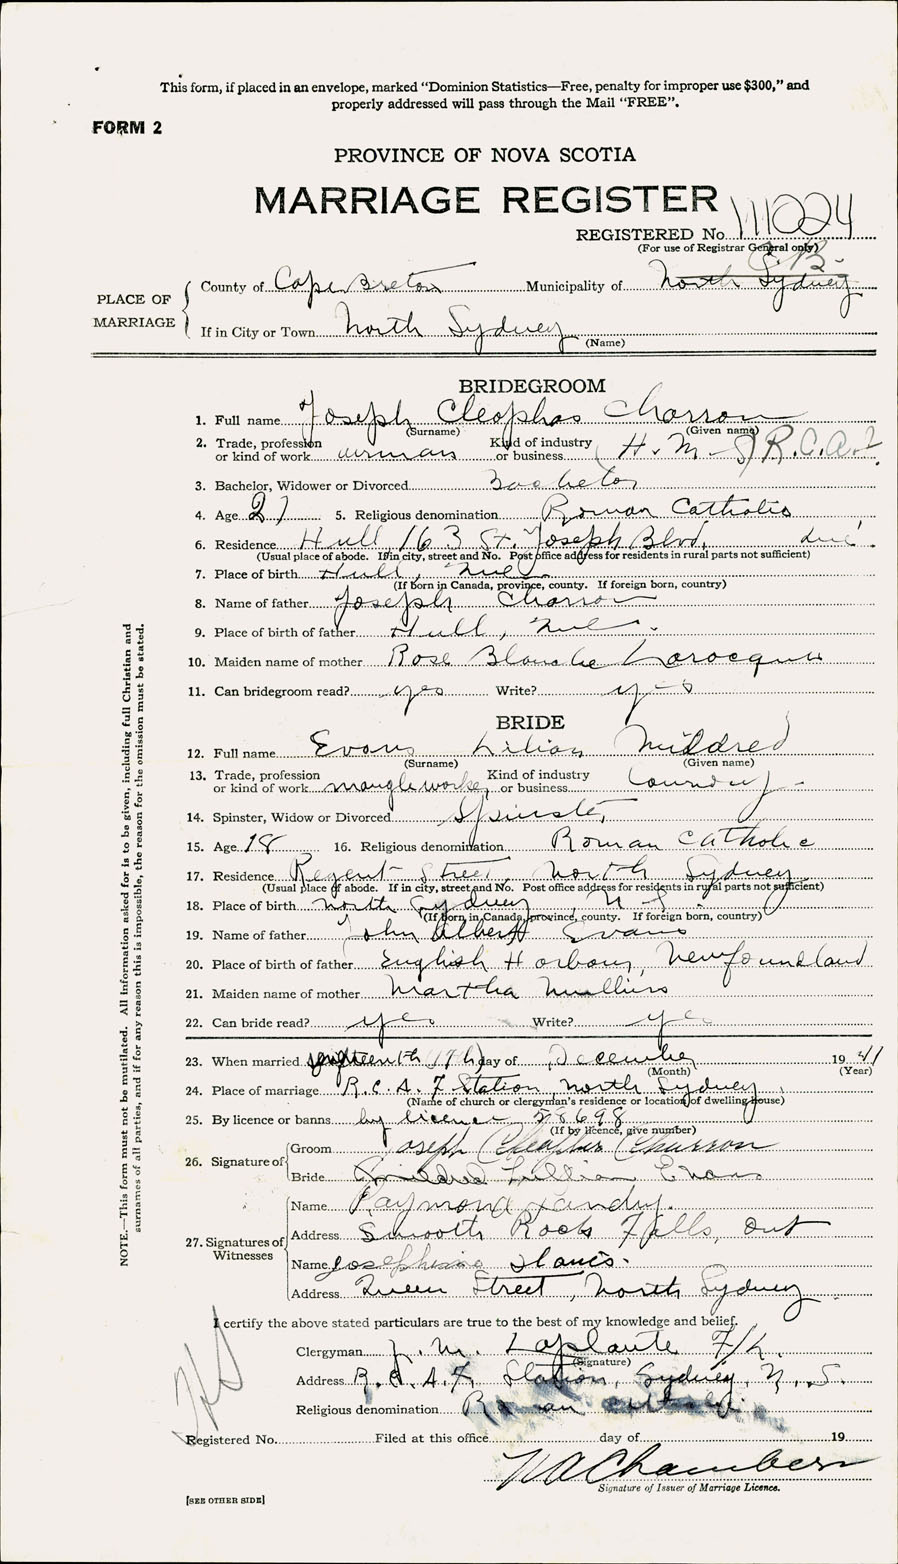 This form, if placed in an envelope, marked “Dominion Statistics—Free, penalty for improper use $300,” and
properly addressed will pass through the Mail “FREE”.
FORM 2
PROVINCE OF NOVA SCOTIA
MARRIAGE REGISTER
REGISTERED No. 111024
(For use of Registrar General only)
C.B.
PLACE OF MARRIAGE
County of Cape Breton Municipality of North Sydney
If in City or Town North Sydney
(Name)
BRIDEGROOM
1. Full name Joseph Cleophas Charron
(Surname) (Given name)
2. Trade, profession or kind of work airman Kind of industry or business (H. M. S) R.C.A.F.
3. Bachelor, Widower or Divorced Bachelor
4. Age 21 5. Religious denomination Roman Catholic
6. Residence Hull 163 St. Joseph Blvd. Que
(Usual place of abode. If in city, street and No. Post office address for residents in rural parts not sufficient)
7. Place of birth Hull, Que
(If born in Canada, province, county. If foreign born, country)
8. Name of father Joseph Charron
9. Place of birth of father Hull, Que.
10. Maiden name of mother Rose Blanche Larocque
11. Can bridegroom read? yes Write? yes
BRIDE
12. Full name Evans Lilian Mildred
(Surname) (Given name)
13. Trade, profession or kind of work mangle worker Kind of industry or business laundry
14. Spinster, Widow or Divorced Spinster
15. Age 18 16. Religious denomination Roman Catholic
17. Residence Regent Street, North Sydney
(Usual place of abode. If in city, street and No. Post office address for residents in rural parts not sufficient)
18. Place of birth North Sydney, N.S.
(If born in Canada, province, county. If foreign born, country)
19. Name of father John Albert Evans
20. Place of birth of father English Harbour, Newfoundland
21. Maiden name of mother Martha Mullins
22. Can bride read? yes Write? yes
23. When married (17th) day of December 1941
(Month) (Year)
24. Place of marriage R.C.A.F Station North Sydney
(Name of church or clergyman's residence or location of dwelling house)
25. By licence or banns by licence 58698
(If by licence, give number)
26. Signature of
Groom Joseph Cleophas Charron
Bride Mildred Lillian Evans
27. Signatures of Witnesses
Name Raymond Landry.
Address Smooth Rock Falls, Ont
Name Josephine
Address Queen Street, North Sydney
I certify the above stated particulars are true to the best of my knowledge and belief.
Clergyman J. M. Laplante F/L.
(Signature)
Address R.C.A.F. Station, Sydney, N.S.
Religious denomination Roman Catholic
Registered No. Filed at this office day of 19
W A Chambers
Signature of Issuer of Marriage Licence.
[SEE OTHER SIDE]
NOTE.—This form must not be mutilated. All information asked for is to be given, including full Christian and
surnames of all parties, and if for any reason this is impossible, the reason for the omission must be stated.